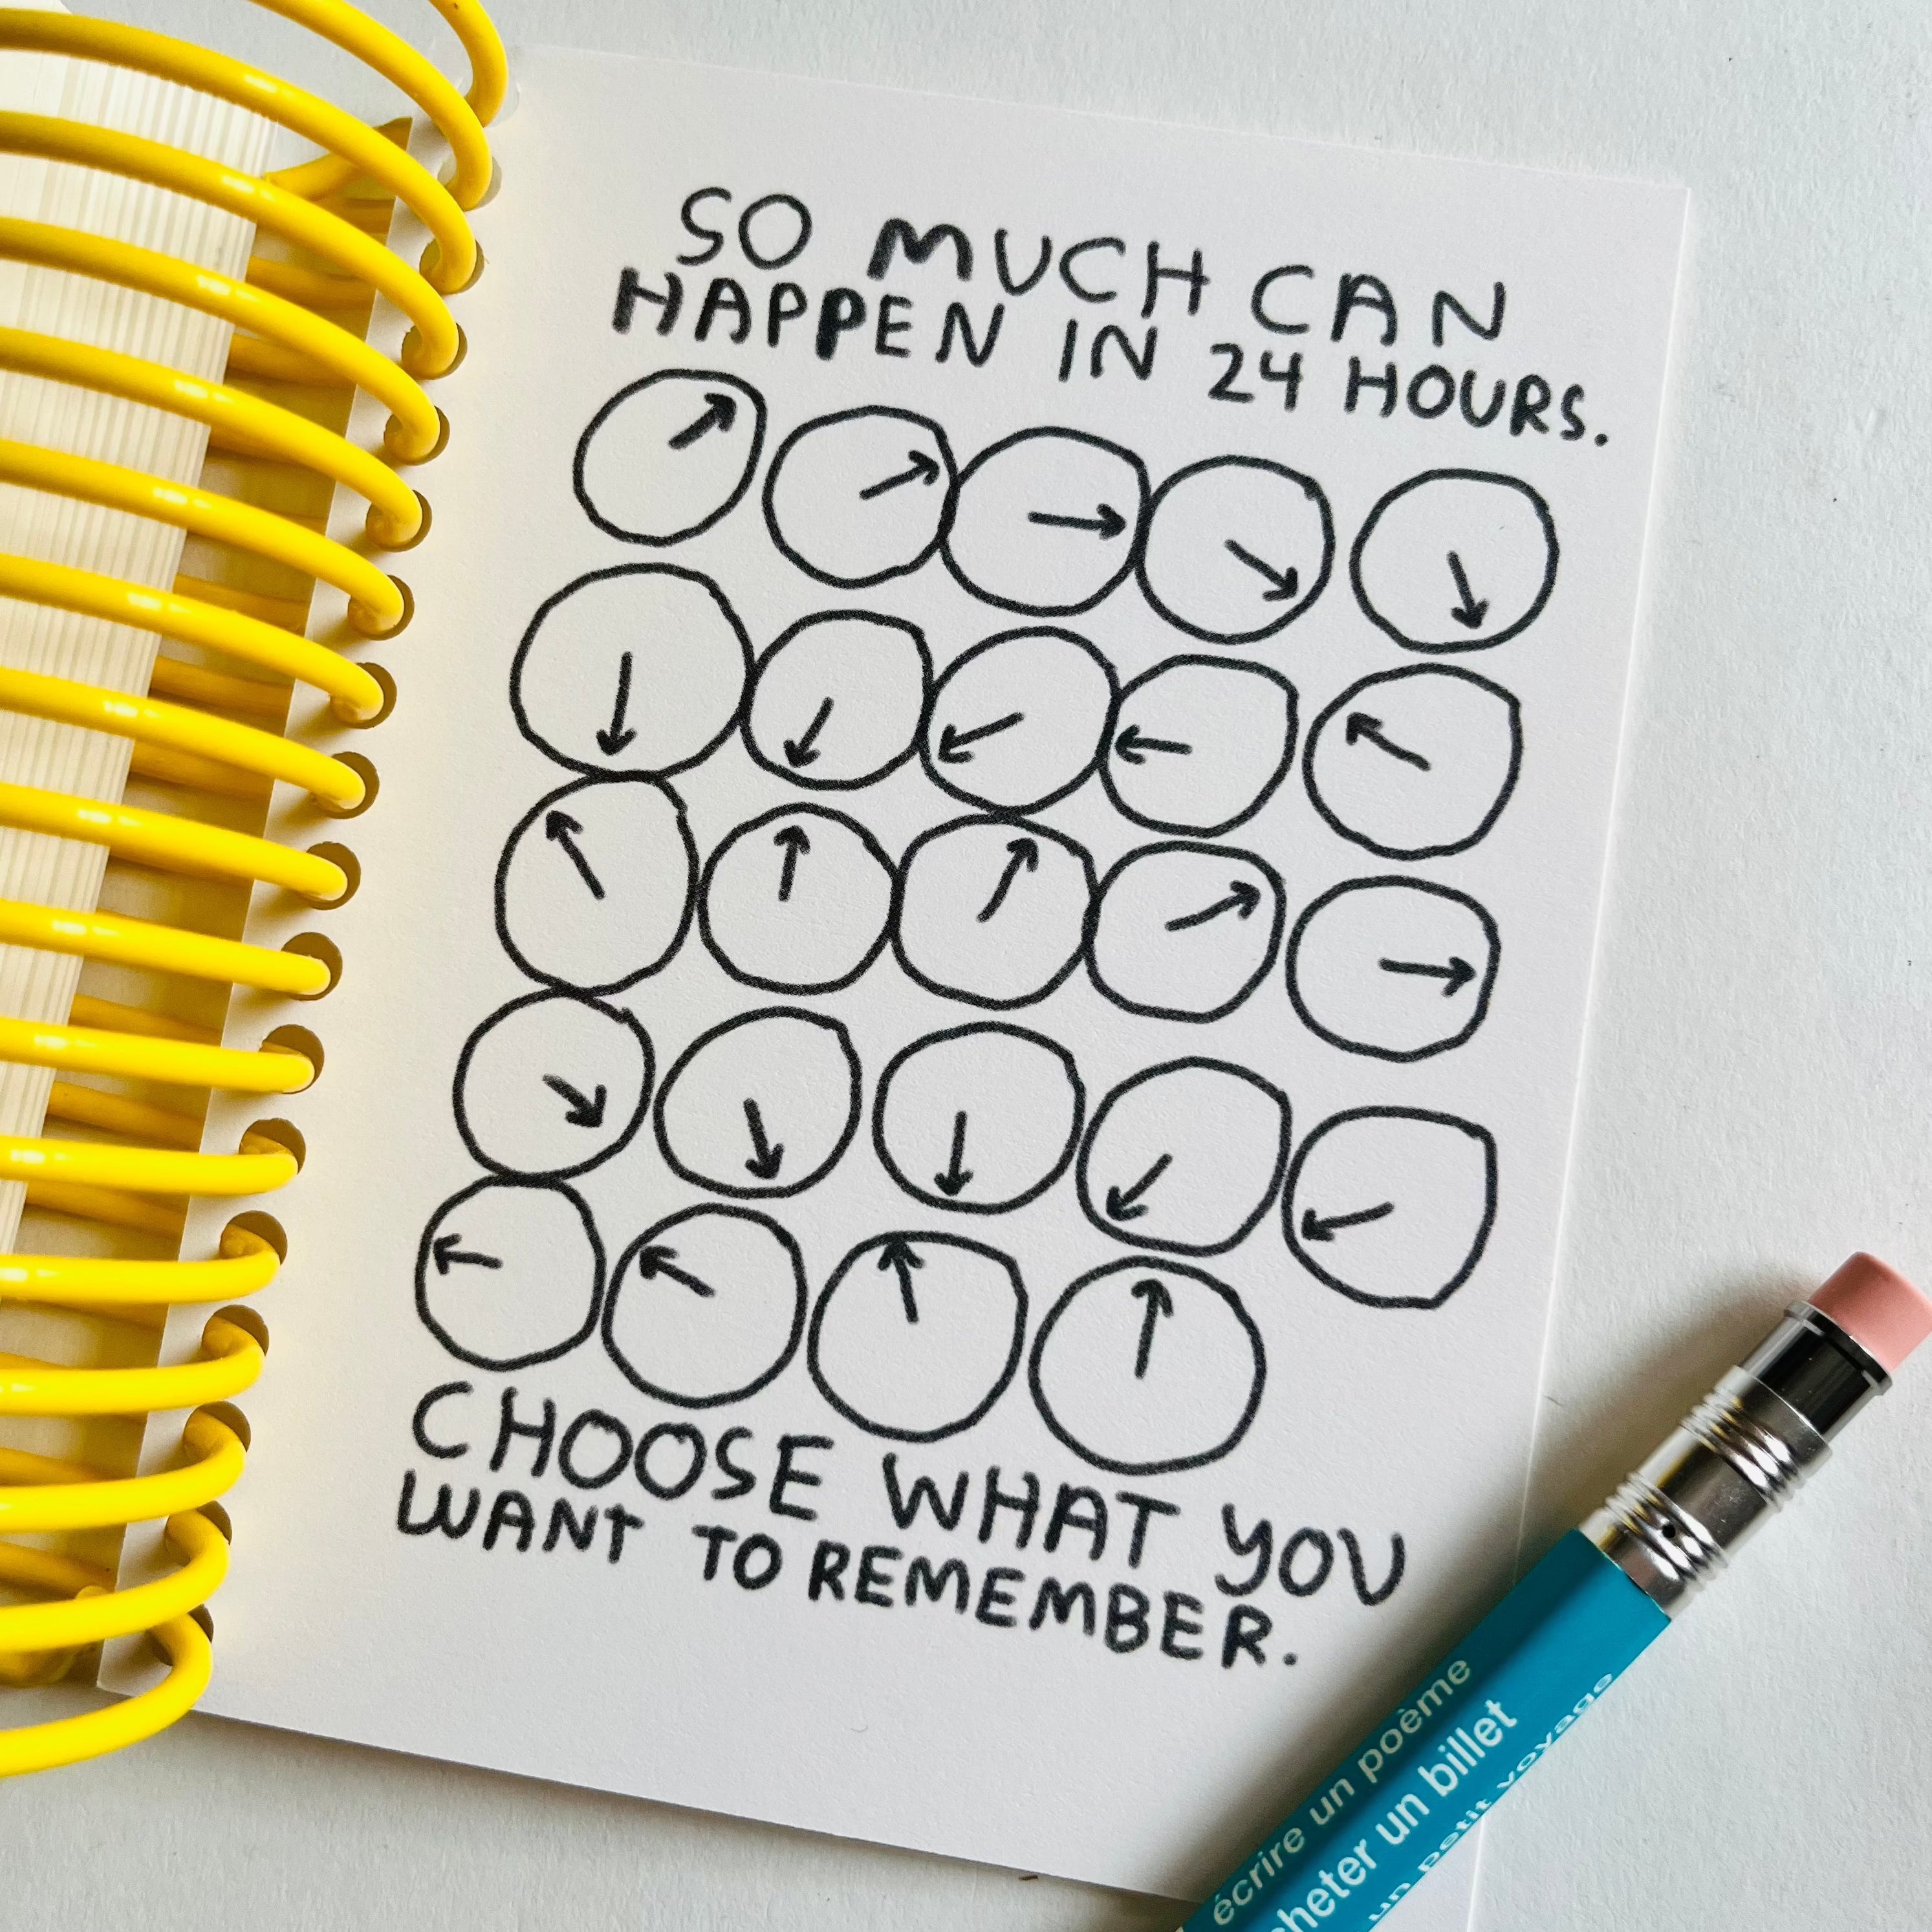 SO MUCH CAN
HAPPEN IN 24 HOURS.
CHOOSE WHAT YOU
WANT TO REMEMBER.
écrire un poème
un billet
un petit voyage